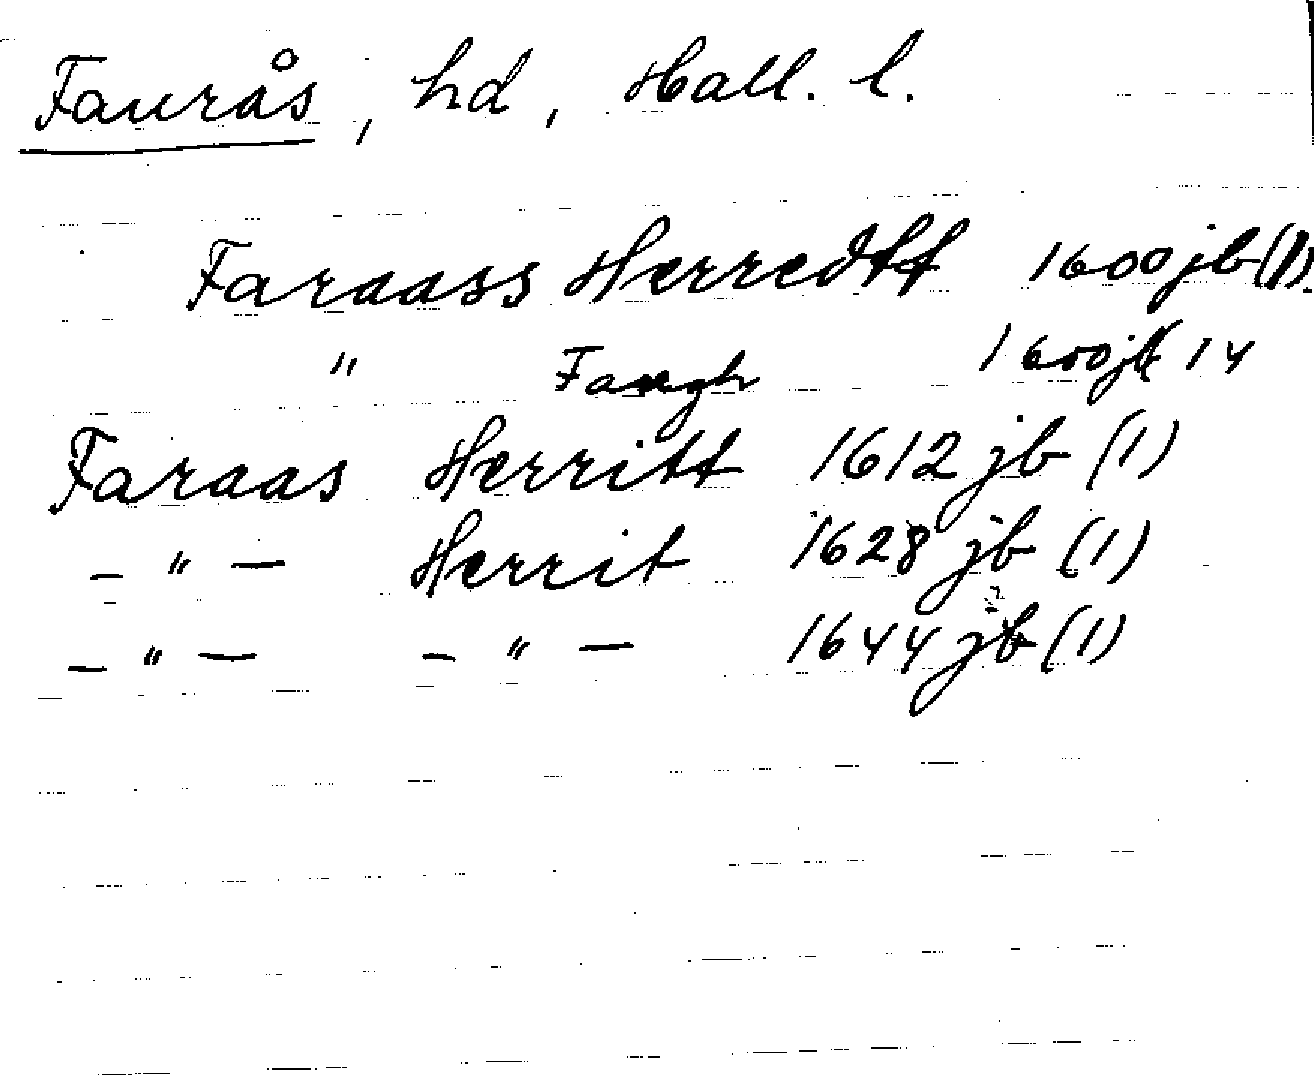 Faurås, hd, Hall. l.
Faraass Herredtt 1600 jb (1)
" 1600 jb 14
Faraas Herritt 1612 jb (1)
— " — Herrit 1628 jb (1)
— " — — " — 1644 jb (1)